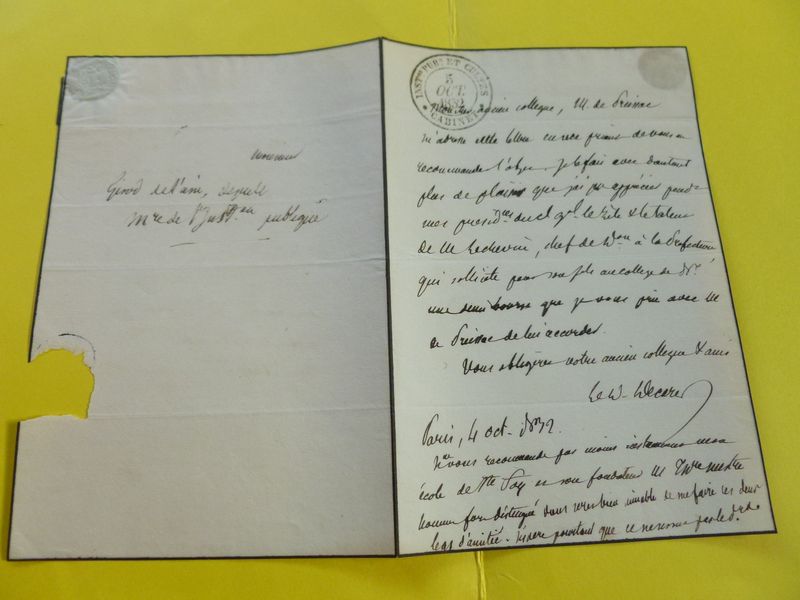 Monsieur
Girod de l'ain, député
Mre de l'Instr.on publique
INST.ON PUB.E ET CULTES
5
OCT.
1832
CABINET
Mon cher ancien collegue, M. de Preissac
m'adresse cette lettre en me priant de vous en
recommander l'objet. Je le fais avec d'autant
plus de plaisir que j'ai pu apprécier pendt
mes du Cl gal le zèle et le talent
de M. chef de d.on à la Préfecture
qui sollicite pour son fils au college de
une demi bourse que je vous prie avec M
de Preissac de lui accorder.
Vous obligerez votre ancien collegue & ami
Paris, 4 oct. 1832
vous recommande pas moins instamment mon
école de Ste Foy et son fondateur M.
homme fort distingué vous serez bien aimable de me faire ces deux
legs d'amitié. J'espère pourtant que ce ne sera pas le d.